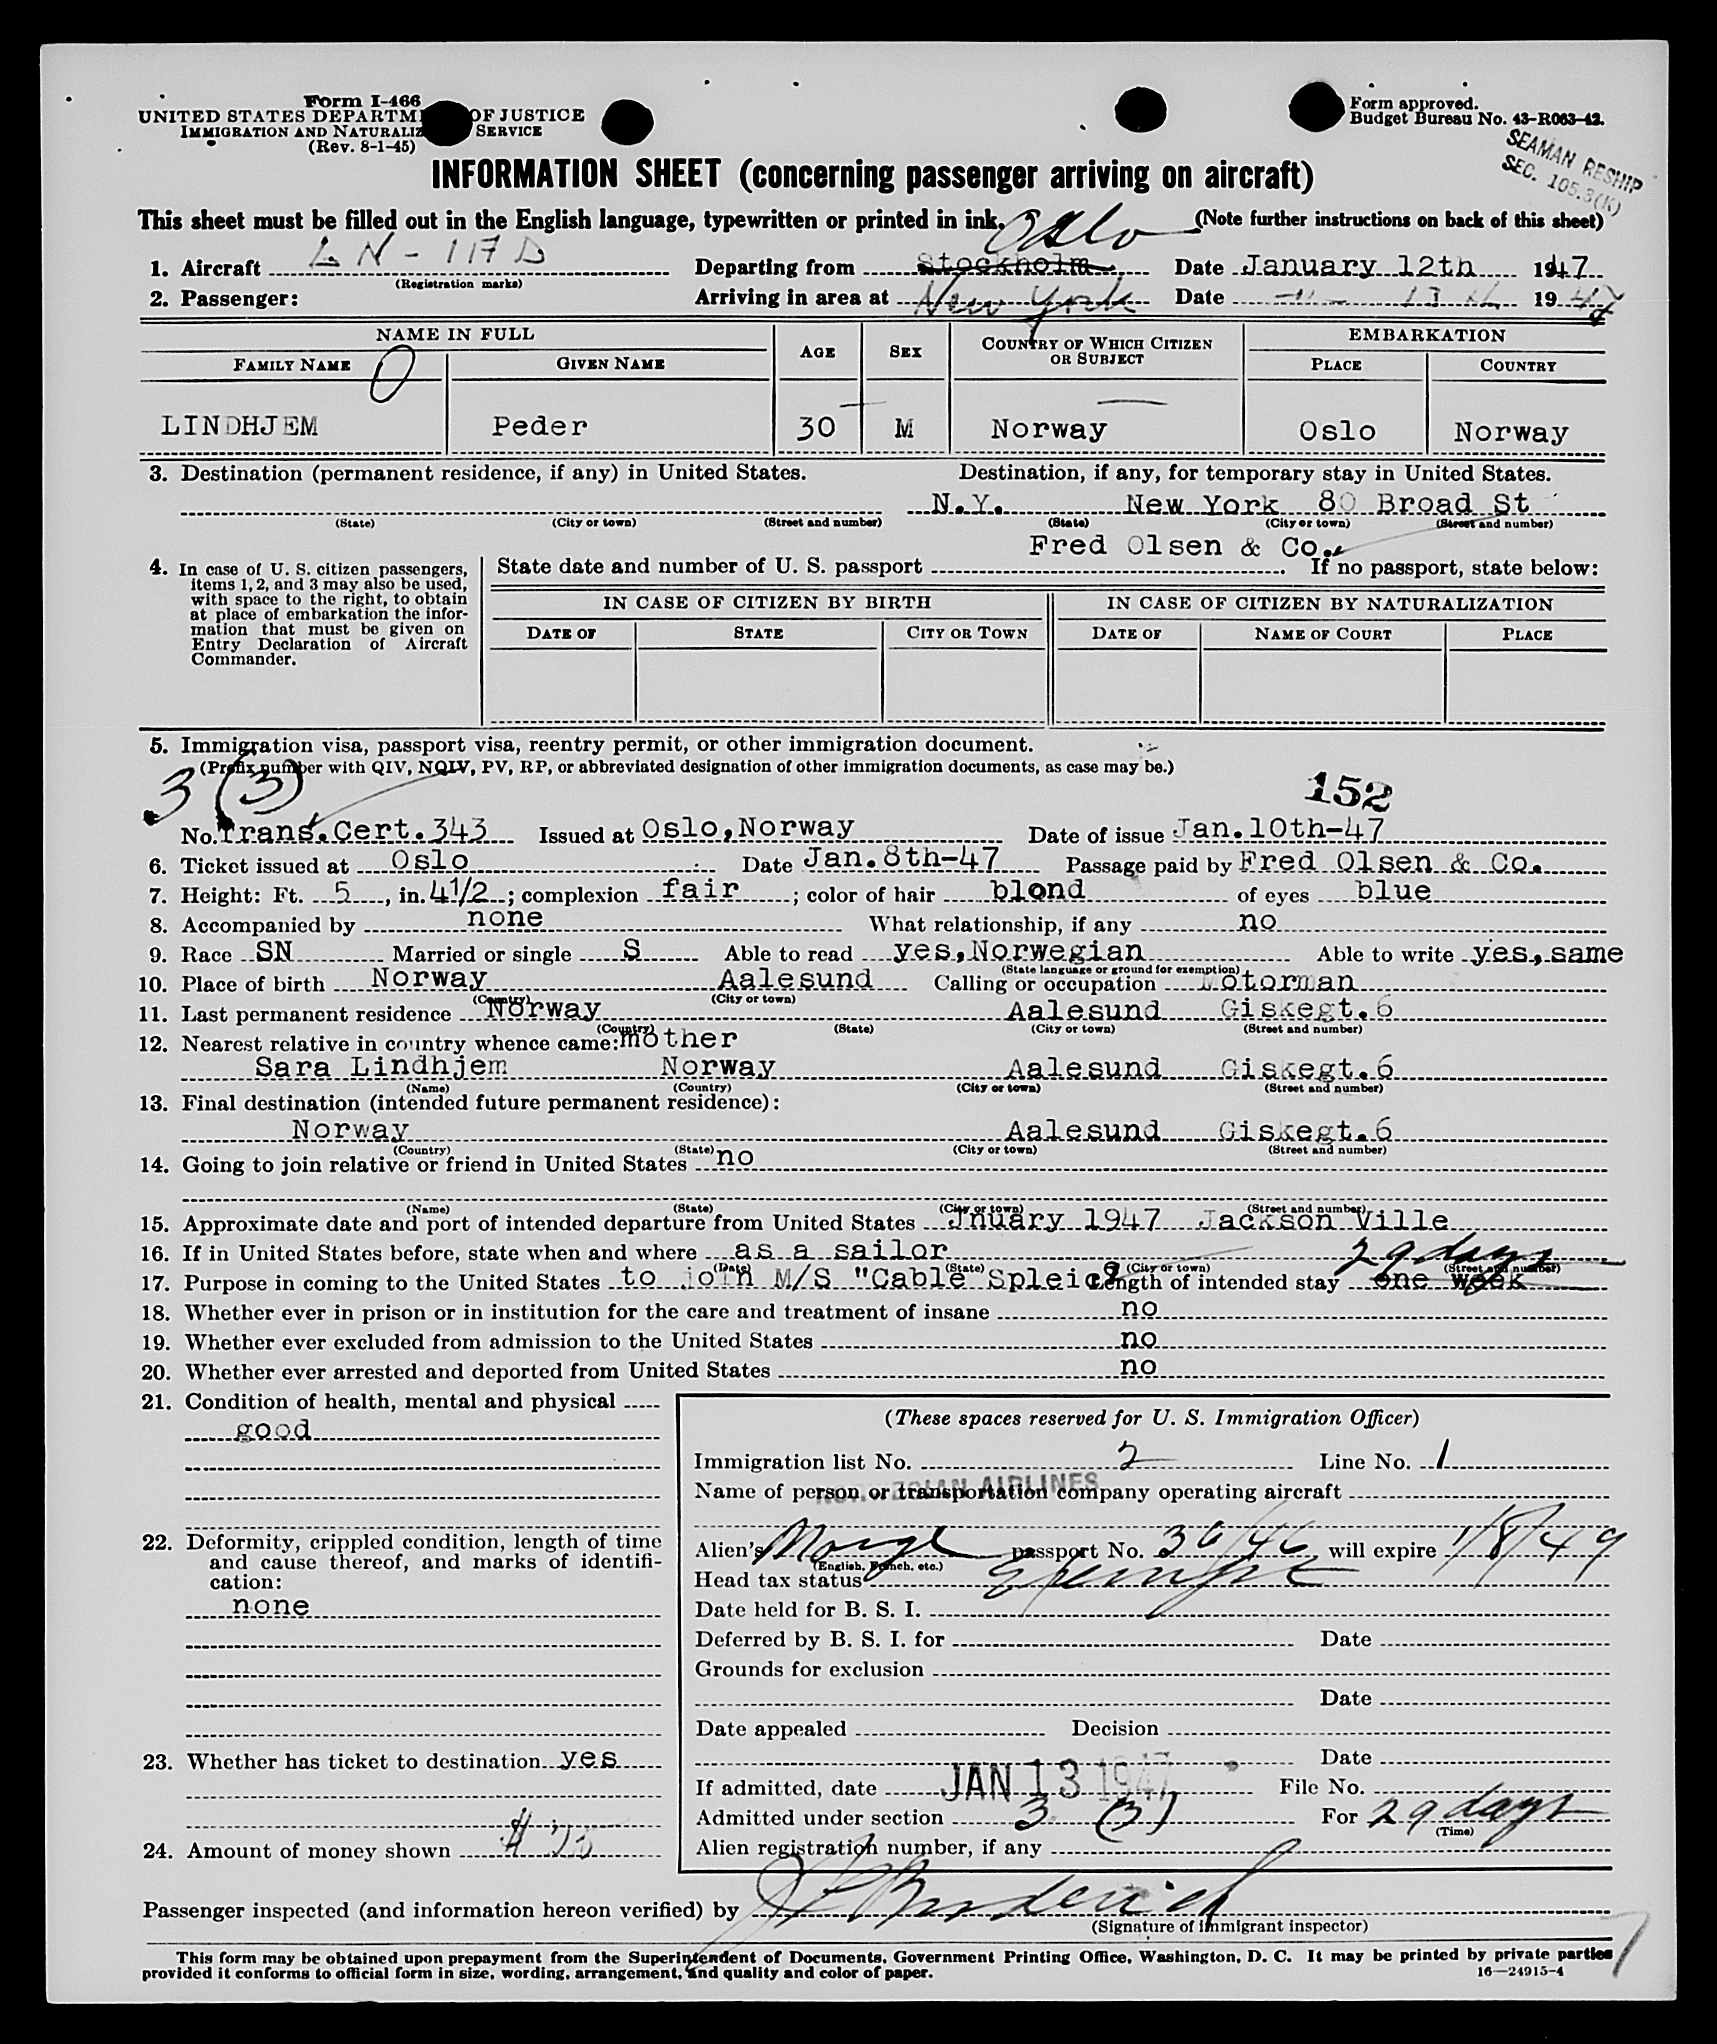 Form I-466
UNITED STATES DEPARTM OF JUSTICE
IMMIGRATION AND NATURALIZ SERVICE
(Rev. 8-1-45)
Form approved.
Budget Bureau No. 43-R063-42.
SEAMAN RESHIP
SEC. 105.3(K)
INFORMATION SHEET (concerning passenger arriving on aircraft)
This sheet must be filled out in the English language, typewritten or printed in ink. (Note further instructions on back of this sheet)
Oslo
1. Aircraft LN - 117 D Departing from Stockholm Date January 12th 1947
(Registration marks)
2. Passenger: Arriving in area at New York Date -"- 13 1947
NAME IN FULL AGE SEX COUNTRY OF WHICH CITIZEN OR SUBJECT EMBARKATION
FAMILY NAME GIVEN NAME PLACE COUNTRY
0
LINDHJEM Peder 30 M Norway Oslo Norway
3. Destination (permanent residence, if any) in United States. Destination, if any, for temporary stay in United States.
N.Y. New York 80 Broad St
(State) (City or town) (Street and number) (State) (City or town) (Street and number)
Fred Olsen & Co.
4. In case of U. S. citizen passengers, items 1, 2, and 3 may also be used, with space to the right, to obtain at place of embarkation the information that must be given on Entry Declaration of Aircraft Commander.
State date and number of U. S. passport If no passport, state below:
IN CASE OF CITIZEN BY BIRTH IN CASE OF CITIZEN BY NATURALIZATION
DATE OF STATE CITY OR TOWN DATE OF NAME OF COURT PLACE
5. Immigration visa, passport visa, reentry permit, or other immigration document.
(Prefix number with QIV, NQIV, PV, RP, or abbreviated designation of other immigration documents, as case may be.)
3 (3) 152
No. Trans.Cert.343 Issued at Oslo,Norway Date of issue Jan.10th-47
6. Ticket issued at Oslo Date Jan.8th-47 Passage paid by Fred Olsen & Co.
7. Height: Ft. 5, in. 4½; complexion fair; color of hair blond of eyes blue
8. Accompanied by none What relationship, if any no
9. Race SN Married or single S Able to read yes,Norwegian Able to write yes,same
(State language or ground for exemption)
10. Place of birth Norway Aalesund Calling or occupation Motorman
(Country) (City or town)
11. Last permanent residence Norway Aalesund Giskegt.6
(Country) (State) (City or town) (Street and number)
12. Nearest relative in country whence came: mother
Sara Lindhjem Norway Aalesund Giskegt.6
(Name) (Country) (City or town) (Street and number)
13. Final destination (intended future permanent residence):
Norway Aalesund Giskegt.6
(Country) (State) (City or town) (Street and number)
14. Going to join relative or friend in United States no
(Name) (State) (City or town) (Street and number)
15. Approximate date and port of intended departure from United States Jnuary 1947 Jackson Ville
16. If in United States before, state when and where as a sailor
(Date) (State) (City or town) (Street and number)
29 days
17. Purpose in coming to the United States to join M/S "Cable Spleice Length of intended stay one week
18. Whether ever in prison or in institution for the care and treatment of insane no
19. Whether ever excluded from admission to the United States no
20. Whether ever arrested and deported from United States no
21. Condition of health, mental and physical
good
22. Deformity, crippled condition, length of time and cause thereof, and marks of identification:
none
23. Whether has ticket to destination yes
24. Amount of money shown
(These spaces reserved for U. S. Immigration Officer)
Immigration list No. 2 Line No. 1
AIRLINES
Name of person or transportation company operating aircraft
Alien's Norge passport No. 36/46 will expire 1/8/49
(English, French, etc.)
Head tax status Exempt
Date held for B. S. I.
Deferred by B. S. I. for Date
Grounds for exclusion
Date
Date appealed Decision
Date
If admitted, date JAN 13 1947 File No.
Admitted under section 3 (3) For 29 days
(Time)
Alien registration number, if any
Passenger inspected (and information hereon verified) by
(Signature of immigrant inspector)
This form may be obtained upon prepayment from the Superintendent of Documents, Government Printing Office, Washington, D. C. It may be printed by private parties
provided it conforms to official form in size, wording, arrangement, and quality and color of paper.
16—24915-4